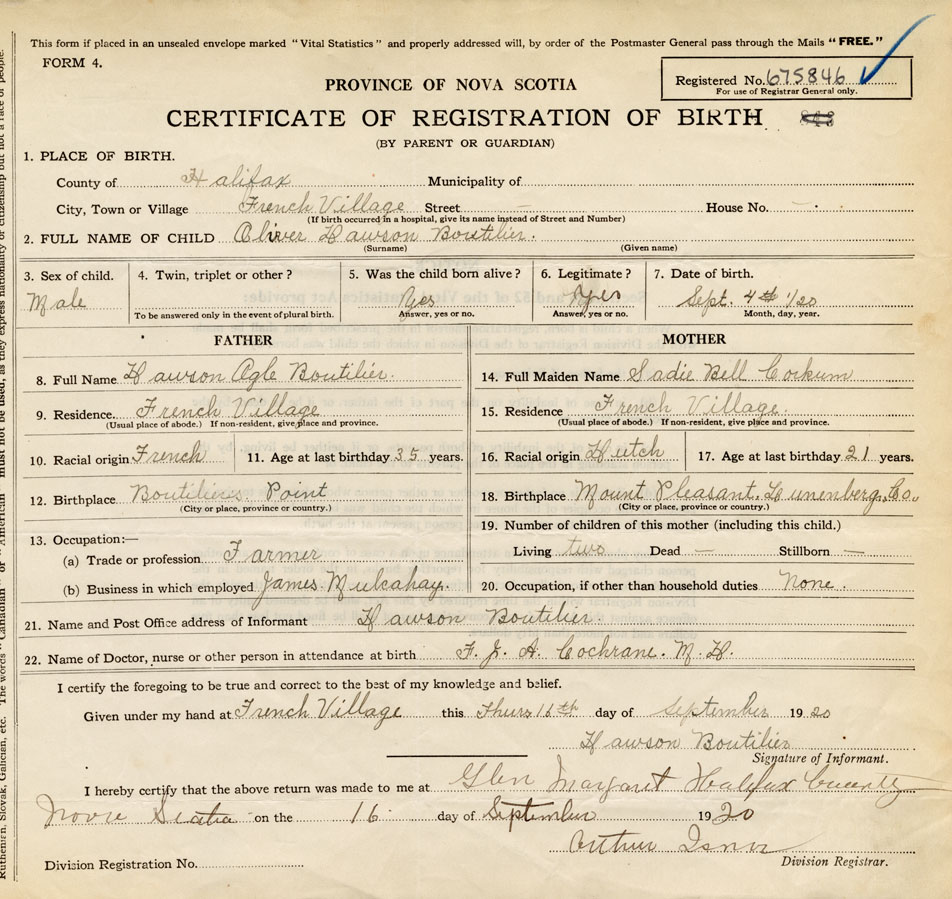 This form if placed in an unsealed envelope marked "Vital Statistics" and properly addressed will, by order of the Postmaster General pass through the Mails "FREE."
FORM 4.
Registered No. 675846
For use of Registrar General only.
PROVINCE OF NOVA SCOTIA
CERTIFICATE OF REGISTRATION OF BIRTH
(BY PARENT OR GUARDIAN)
1. PLACE OF BIRTH.
County of Halifax Municipality of
City, Town or Village French Village Street — House No. —
(If birth occurred in a hospital, give its name instead of Street and Number)
2. FULL NAME OF CHILD Oliver Dawson Boutilier.
(Surname) (Given name)
3. Sex of child. 4. Twin, triplet or other? 5. Was the child born alive? 6. Legitimate? 7. Date of birth.
Male Yes Yes Sept. 4th 1/20
To be answered only in the event of plural birth. Answer, yes or no. Answer, yes or no. Month, day, year.
FATHER MOTHER
8. Full Name Dawson Ogle Boutilier. 14. Full Maiden Name Sadie Bell Corkum
9. Residence. French Village 15. Residence French Village.
(Usual place of abode.) If non-resident, give place and province. (Usual place of abode.) If non-resident, give place and province.
10. Racial origin French 11. Age at last birthday 35 years. 16. Racial origin Dutch 17. Age at last birthday 21 years.
12. Birthplace Boutiliers Point 18. Birthplace Mount Pleasant. Lunenberg. Co.
(City or place, province or country.) (City or place, province or country.)
13. Occupation:— 19. Number of children of this mother (including this child.)
(a) Trade or profession Farmer Living two Dead — Stillborn —
(b) Business in which employed James Mulcahay. 20. Occupation, if other than household duties None.
21. Name and Post Office address of Informant Dawson Boutilier.
22. Name of Doctor, nurse or other person in attendance at birth F. J. A. Cochrane. M. D.
I certify the foregoing to be true and correct to the best of my knowledge and belief.
Given under my hand at French Village this Thurs 16th day of September 1920
Dawson Boutilier
Signature of Informant.
I hereby certify that the above return was made to me at Glen Margaret Halifax County
Nova Scotia on the 16 day of September 1920
Arthur
Division Registration No. Division Registrar.